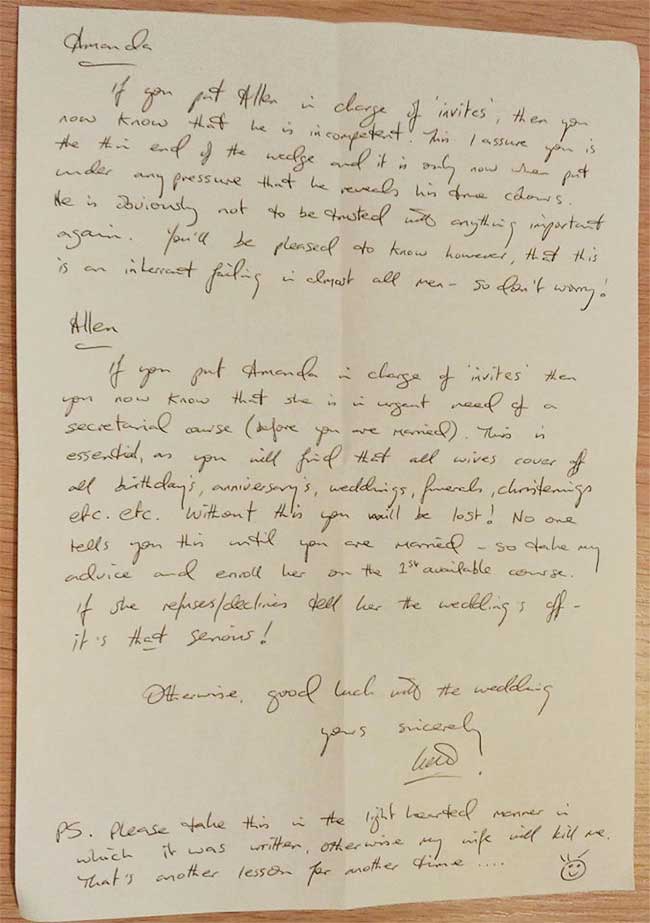 Amanda
If you put Allen in charge of 'invites', then you
now know that he is incompetent. This I assure you is
the thin end of the wedge and it is only now when put
under any pressure that he reveals his true colours.
He is obviously not to be trusted with anything important
again. You'll be pleased to know however, that this
is an inherrant failing in almost all men - so don't worry!
Allen
If you put Amanda in charge of 'invites' then
you now know that she is in urgent need of a
secretarial course (before you are married). This is
essential, as you will find that all wives cover off
all birthday's, anniversary's, weddings, funerals, christenings
etc. etc. Without this you will be lost! No one
tells you this until you are married - so take my
advice and enroll her on the 1st available course.
If she refuses/declines tell her the wedding's off -
it's that serious!
Otherwise, good luck with the wedding
yours sincerely
PS. Please take this in the light hearted manner in
which it was written, otherwise my wife will kill me.
That's another lesson for another time ....